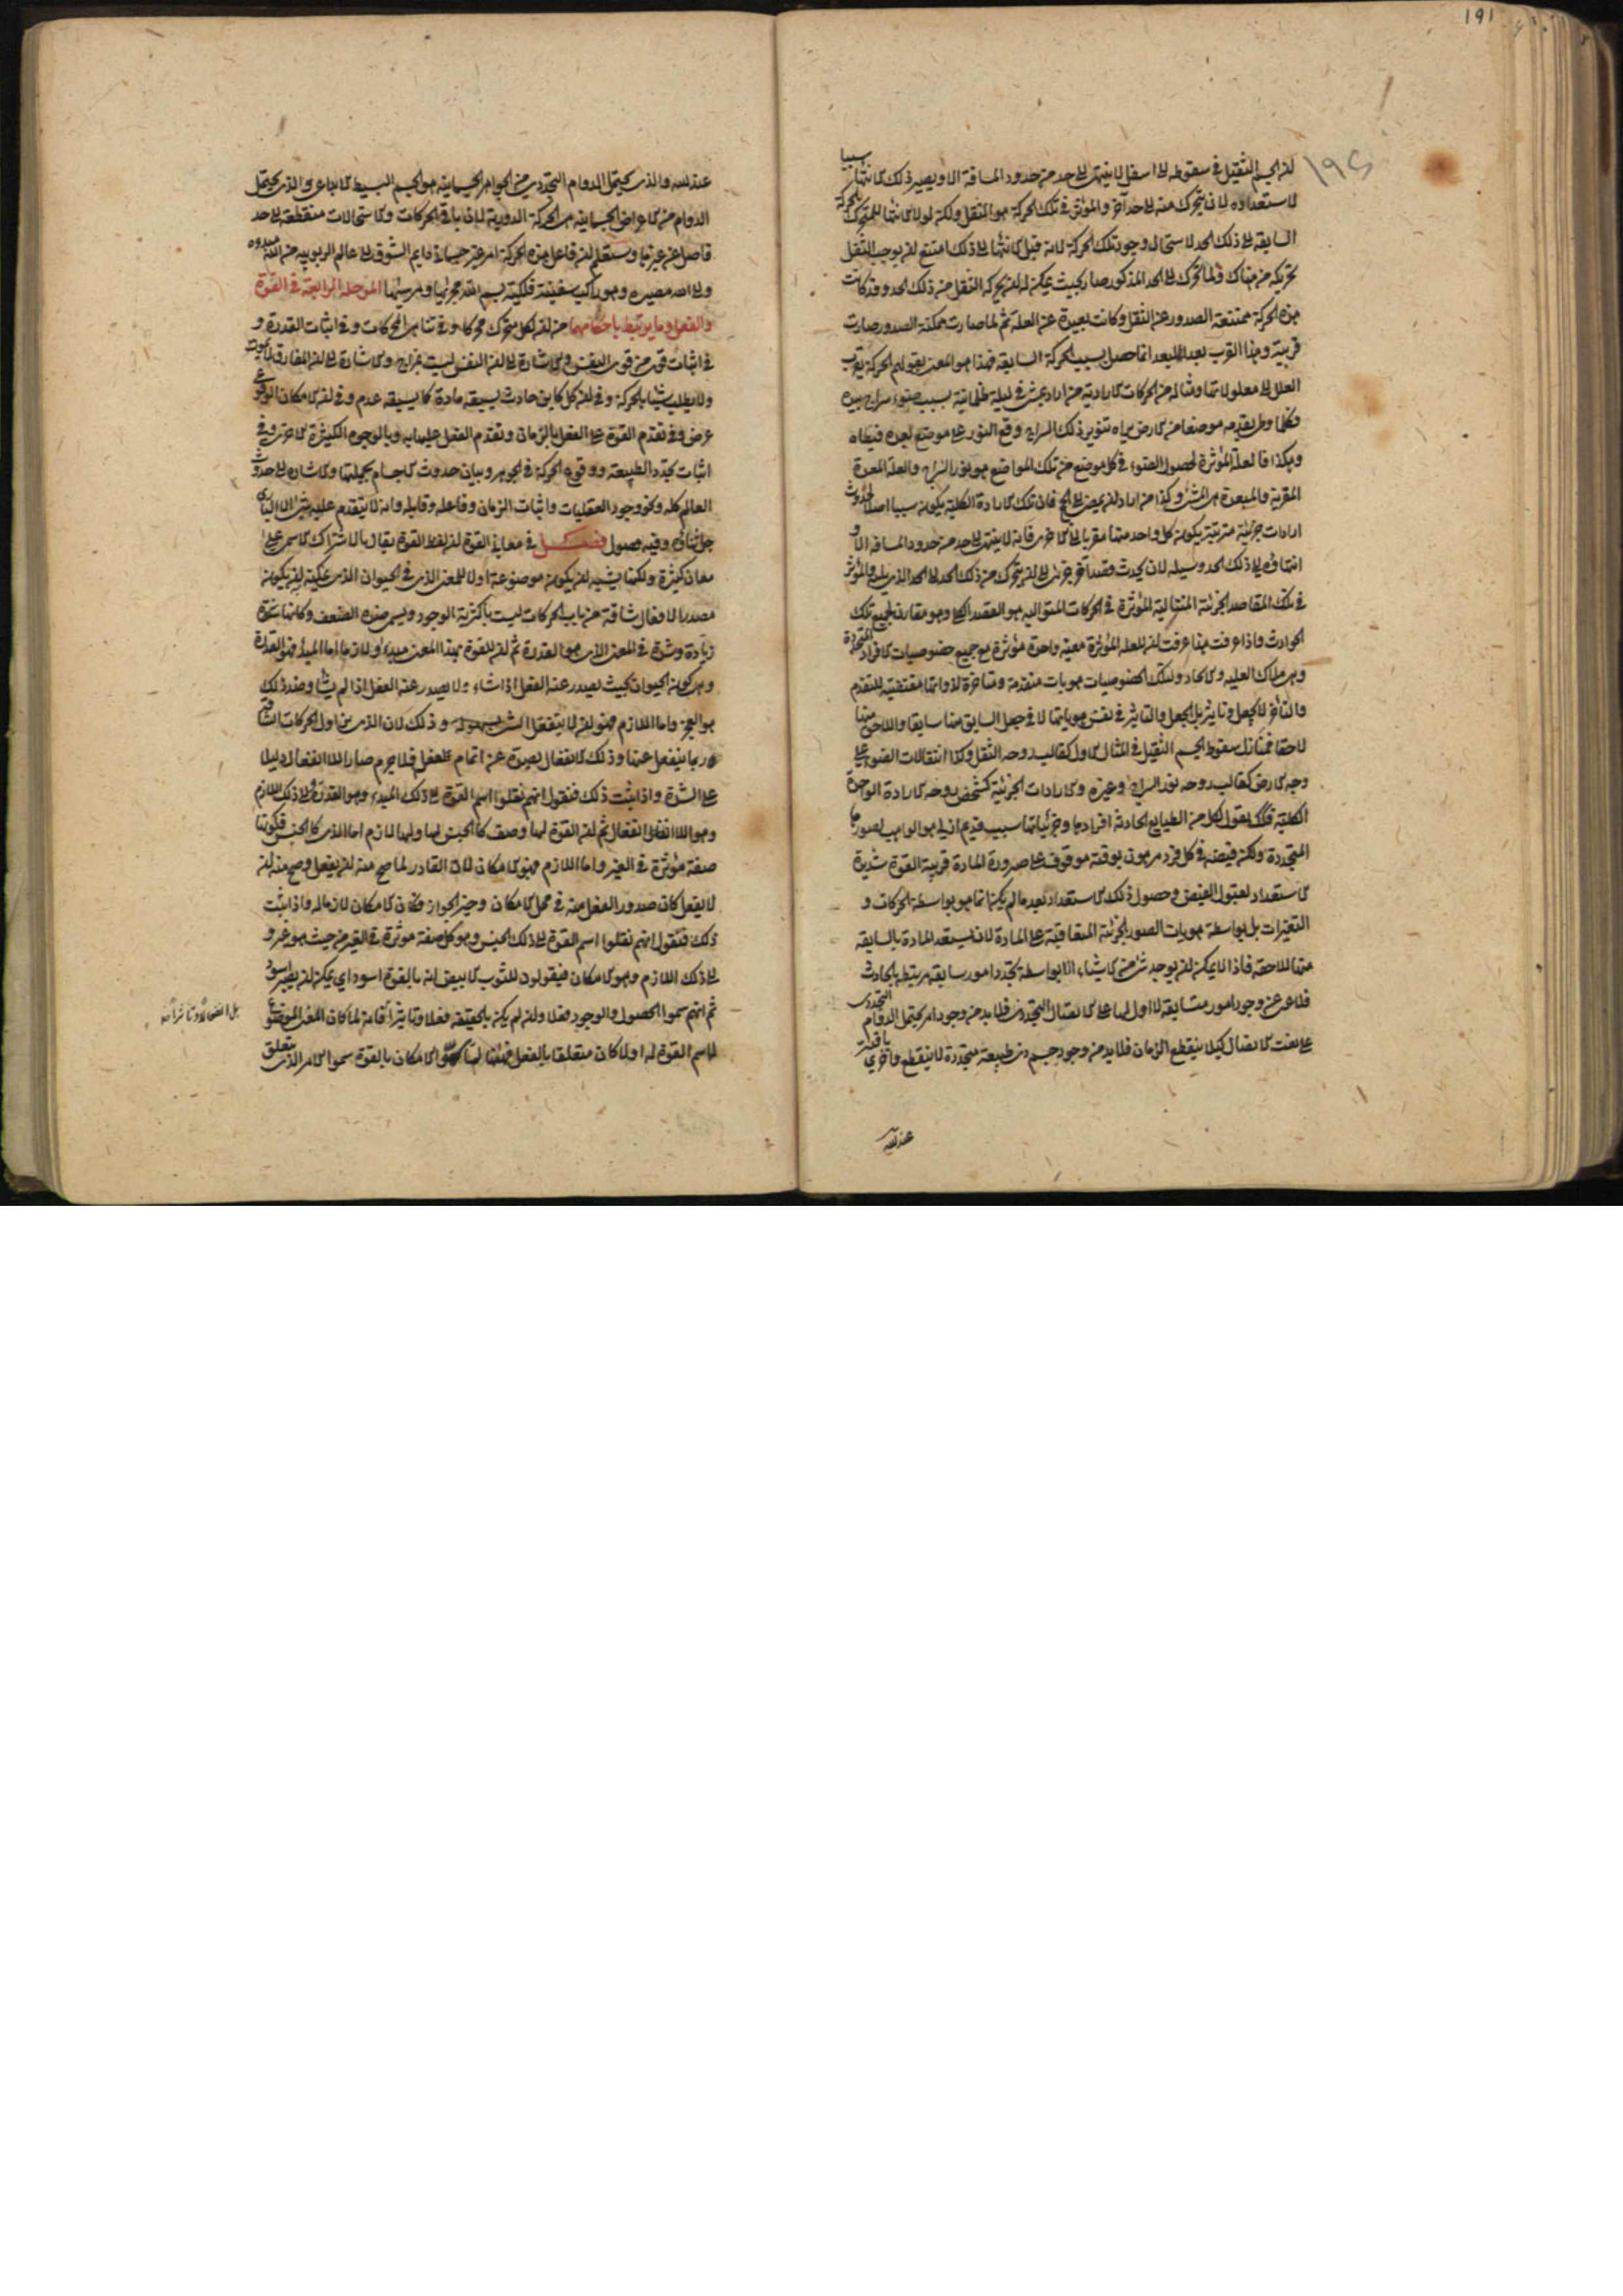 ١٩١
١٩٤
سببا
ان الجسم الثقيل في سقوطه الى اسفل لا ينتهي الى حد من حدود المسافة الا ويصير ذلك الانتهاء
لاستعداده لان يتحرك منه الى حد آخر والمؤثر في تلك الحركة هو الثقل ولكنه لولا الانتهاء للمتحرك بالحركة
السابقة الى ذلك الحد لاستحال وجود تلك الحركة لانه قبل الانتهاء الى ذلك امتنع ان يوجب الثقل
تحريكه من هناك ولما تحرك الى الحد المذكور صار بحيث يمكنه ان يحركه الثقل من ذلك الحد وقد كانت
هذه الحركة ممتنعة الصدور عن الثقل وكانت بعيدة عن العلة ثم لما صارت ممكنة الصدور صارت
قريبة وهذا القرب بعد البعد انما حصل بسبب الحركة السابقة فهذا هو المعنى بقولهم الحركة تقرب
العلل الى معلولاتها ومثاله من الحركات الارادية من اراد يمشي في ليلة ظلمانية بسبب ضوء سراج بيده
وكلما وطى بقدمه موضعا من الارض يراه بتنوير ذلك السراج وقع النور على موضع بعده فيطاه
وهكذا فالعلة المؤثرة لحصول الضوء في كل موضع من تلك المواضع هو نور السراج والعلة المعدة
المقربة والمبعدة هي المشي وكذا من اراد ان يمضي الى الحج فان تلك الارادة الكلية يكون سببا اصلا لحدوث
ارادات جزئية مترتبة يكون كل واحد منها مقربا الى الاخرى فانه لا ينتهي الى حد من حدود المسافة الا و
انتهاؤه الى ذلك الحد وسيلة لان يحدث قصدا آخر جزئى الى ان يتحرك من ذلك الحد الى الحد الذي يليه والمؤثر
في تلك المقاصد الجزئية المتتالية المؤثرة في الحركات المتوالية هو القصد الكلي وهو مقارن لجميع تلك
الحوادث واذا عرفت هذا عرفت ان للعلة المؤثرة معية واحدة مؤثرة مع جميع خصوصيات الافراد المتجددة
وهي ملاك العلية والايجاد ولتلك الخصوصيات هويات متقدمة ومتاخرة لذواتها مقتضية للتقدم
والتاخر لا بجعل وتاثير بل الجعل والتاثير في نفس هوياتها لا في جعل السابق منها سابقا واللاحق منها
لاحقا فمنازل سقوط الجسم الثقيل في المثال الاول كقالب روحه الثقل وكذا انتقالات الضوء على
وجه الارض كقالب روحه نور السراج وغيره والارادات الجزئية كشخص روحه الارادة الواحدة
الكلية فكك نقول لكل من الطبايع الحادثة افرادها وجزئياتها سبب قديم ازلي هو الواهب لصورها
المتجددة ولكن فيضه في كل فرد مرهون بوقته موقوف على صيرورة المادة قريبة القوة شديدة
الاستعداد لقبول الفيض وحصول ذلك الاستعداد بعد ما لم يكن انما هو بواسطة الحركات و
التغيرات بل بواسطة هويات الصور الجزئية المتعاقبة على المادة لان يستعد المادة بالسابقة
منها للاحقة فاذا لا يمكن ان يوجد شئ من الاشياء الا بواسطة تجدد امور سابقة مرتبطة بالحادث
فلا عن عن وجود امور متسابقة لا اول لها على الاتصال التجددى فلا بد من وجود امر يحتمل الدوام التجددى
على نعت الاتصال كيلا ينقطع الزمان فلا بد من وجود جسم ذى طبيعة متجددة لا ينقطع واخرى باقية
عند الله
عند الله والذى يحتمل الدوام التجددى من الجواهر الجسمانية هو الجسم البسيط الابداعى والذى يحتمل
الدوام من الاعراض الجسمانية هى الحركة الدورية لان باقى الحركات والاستحالات منقطعة الى حد
فاصل عن غيرها وستعلم ان فاعل هذه الحركة امر غير جسمانى دايم الشوق الى عالم الربوبية من الله مبدوه
والى الله مصيره وهو راكب سفينة فلكية بسم الله مجريها ومرسيها المرحلة الرابعة في القوة
والفعل وما يرتبط باحكامهما من ان لكل متحرك محركا وفي تناهى المحركات وفي اثبات القدرة و
في اثبات قوى من قوى النفس والاشارة الى ان النفس ليست بمزاج والاشارة الى ان المفارق لا يموت
ولا يطلب شيئا بالحركة وفي ان كل كاين حادث يسبقه مادة كما يسبقه عدم وفي ان الامكان الوقوعى
عرض وفي تقدم القوة على الفعل بالزمان وتقدم الفعل عليها به وبالوجوه الكثيرة الاخرى وفي
اثبات تجدد الطبيعة ووقوع الحركة في الجوهر وبيان حدوث الاجسام بجملتها والاشارة الى حدوث
العالم كله ونحو وجود العقليات واثبات الزمان وفاعله وقابله وانه لا يتقدم عليه شئ الا البارى
جل ثناؤه وفيه فصول فصل في معانى القوة ان لفظ القوة يقال بالاشتراك الاسمى على
معان كثيرة ولكنها يشبه ان يكون موضوعة اولا للمعنى الذى في الحيوان الذى يمكنه ان يكون
مصدرا لافعال شاقة من باب الحركات ليست باكثرية الوجود ويسمى ضده الضعف وكانها شدة
زيادة وشدة في المعنى الذى هو القدرة ثم ان للقوة بهذا المعنى مبدء ولازما اما المبدء فهو القدرة
وهى كون الحيوان بحيث يصدر عنه الفعل اذا شاء ولا يصدر عنه الفعل اذا لم يشأ وضد ذلك
هو العجز واما اللازم فهو ان لا ينفعل الشئ بسهولة وذلك لان الذى يزاول الحركات الشاقة
ربما ينفعل عنها وذلك الانفعال يصده عن اتمام فعله فلا جرم صار اللاانفعال دليلا
على الشدة واذا ثبت ذلك فنقول انهم نقلوا اسم القوة الى ذلك المبدء وهو القدرة والى ذلك اللازم
وهو اللاانفعال ثم ان القوة لها وصف كالجنس لها ولها لازم اما الذى كالجنس فكونها
صفة مؤثرة في الغير واما اللازم فهو الامكان لان القادر لما صح منه ان يفعل وصح منه ان
لا يفعل كان صدور الفعل منه في محل الامكان وحيز الجواز فكان الامكان لازما له واذا ثبت
ذلك فنقول انهم نقلوا اسم القوة الى ذلك الجنس وهو كل صفة موثرة في الغير من حيث هو غير و
الى ذلك اللازم وهو الامكان فيقولون للثوب الابيض انه بالقوة اسود اي يمكنه ان يصير اسود
ثم انهم سموا الحصول والوجود فعلا وان لم يكن بالحقيقة فعلا وتاثيرا فانه لما كان المعنى الموضوع
بل انفعالا وتاثرا
لاسم القوة له اولا كان متعلقا بالفعل فههنا لما سموا الامكان بالقوة سموا الامر الذى يتعلق